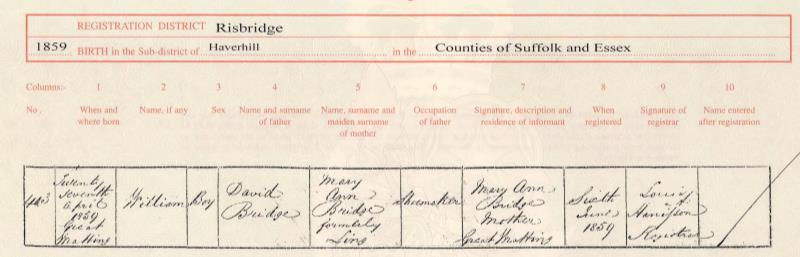 REGISTRATION DISTRICT Risbridge
1859 BIRTH in the Sub-district of Haverhill in the Counties of Suffolk and Essex
Columns:- 1 2 3 4 5 6 7 8 9 10
No. When and where born Name, if any Sex Name and surname of father Name, surname and maiden surname of mother Occupation of father Signature, description and residence of informant When registered Signature of registrar Name entered after registration
Twenty Seventh April 1859 Great William Boy David Bridge Mary Ann Bridge formerly Shoemaker Mary Ann Bridge Mother Great Sixth June 1859 Louis Harrisson Registrar